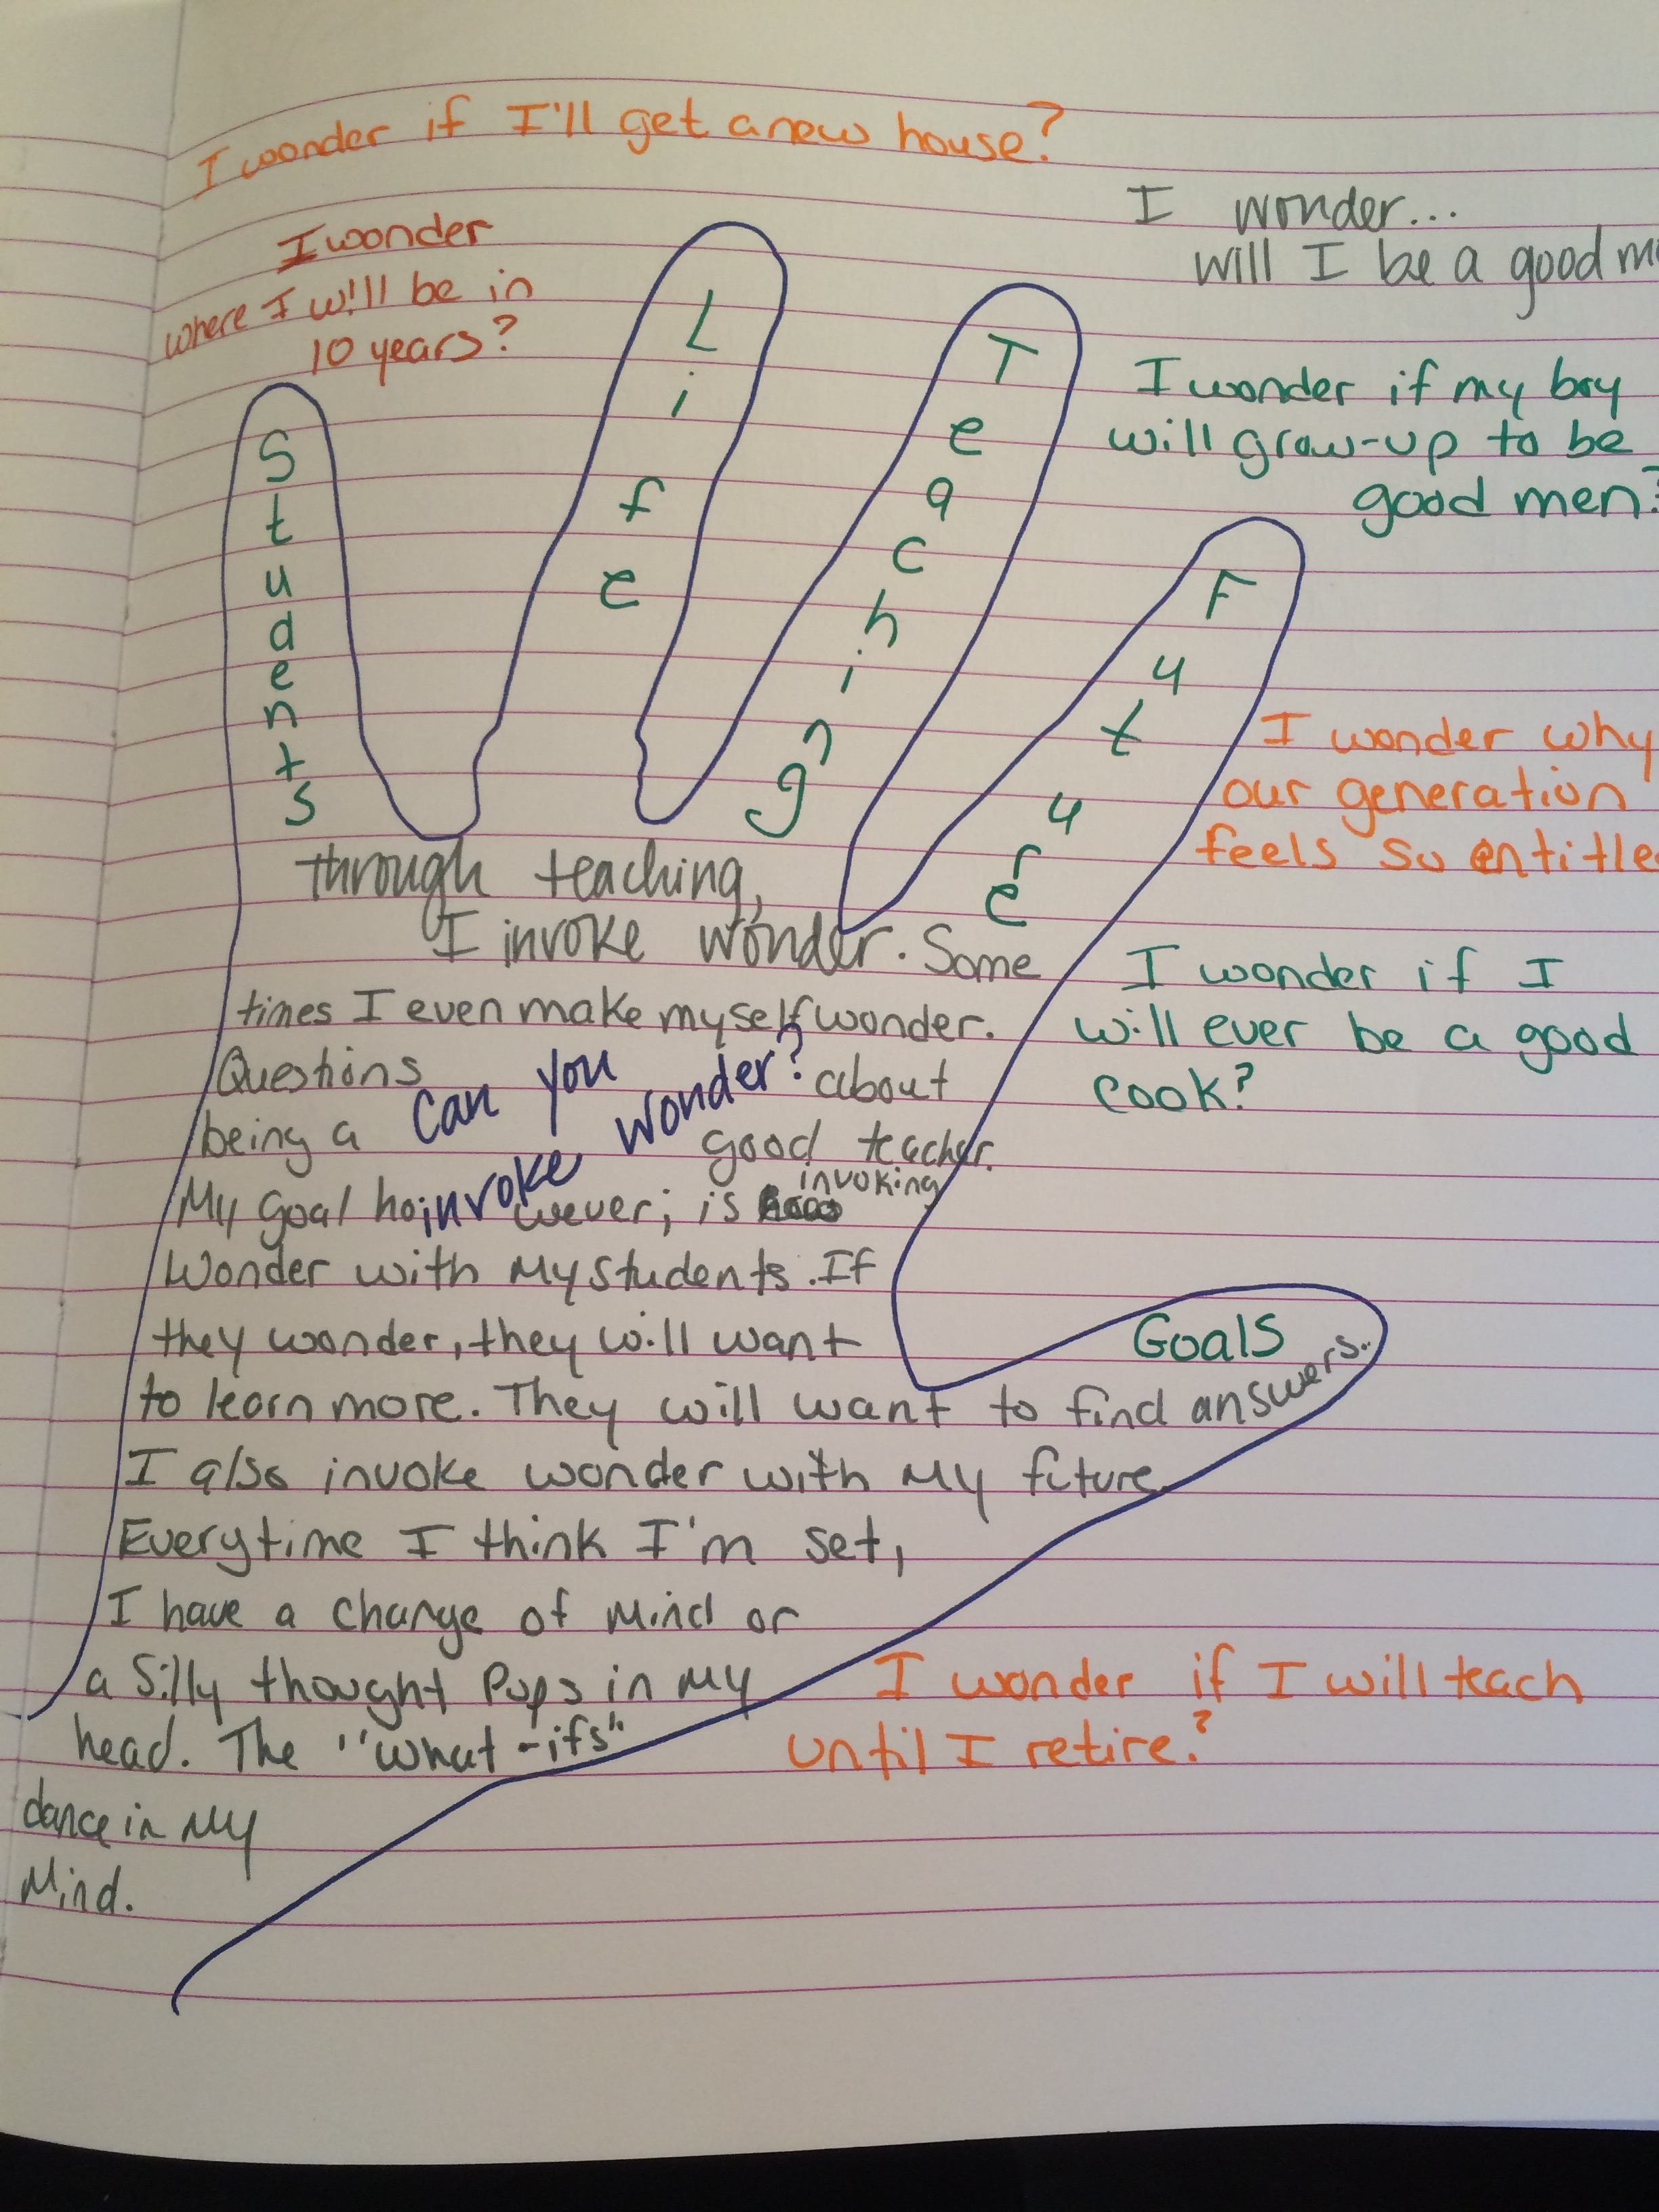 I wonder if I'll get a new house?
I wonder
where I will be in
10 years?
I wonder...
will I be a good
I wonder if my boy
will grow-up to be
good men?
Students
Life
Teaching
Future
I wonder why
our generation
feels so
I wonder if I
will ever be a good
cook?
Goals
through teaching,
I invoke wonder. Some
times I even make myself wonder.
Questions about
being a good teacher.
can you
invoke wonder?
My goal however; is invoking
wonder with my students. If
they wonder, they will want
to learn more. They will want to find answers.
I also invoke wonder with my future
Everytime I think I'm set,
I have a change of mind or
a silly thought pops in my
head. The "what-ifs"
dance in my
mind.
I wonder if I will teach
until I retire?